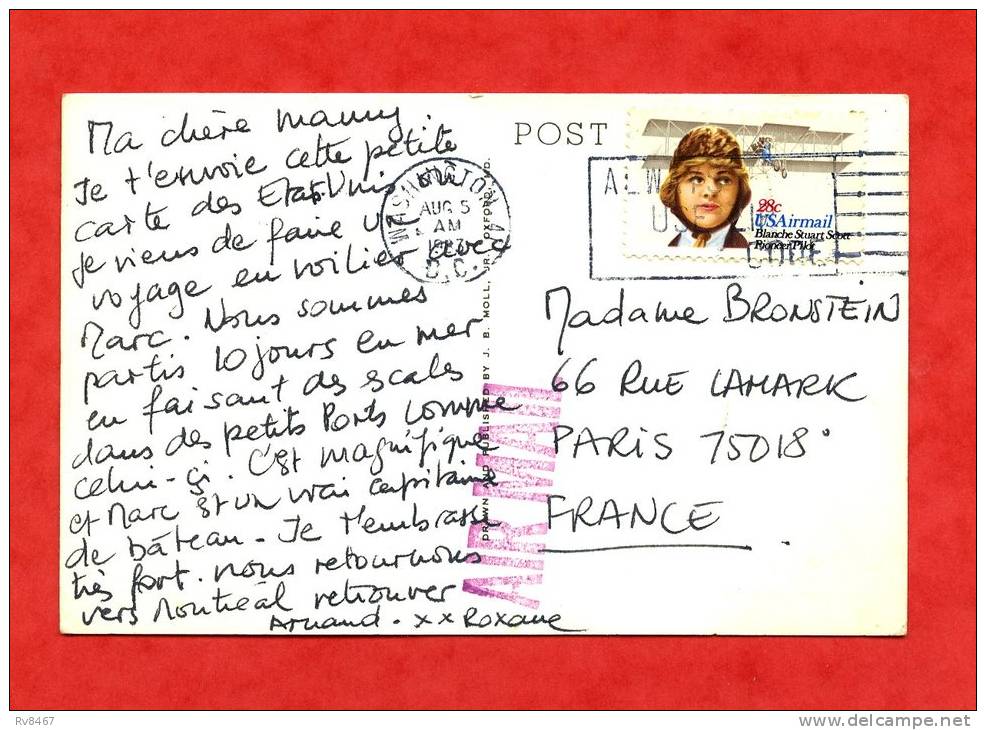 Ma chère mamy.
Je t'envoie cette petite
carte des Etats Unis
je viens de faire un
voyage en voilier avec
Marc. Nous sommes
partis 10 jours en mer
en faisant des escales
dans des petits Ports comme
celui-çi. C'est magnifique
et Marc est un vrai capitaine
de bâteau. Je t'embrasse
très fort. nous retournons
vers Montréal retrouver
Arnaud. xx Roxane
POST
WASHINGTON
AUG 5
AM
D.C.
28c
USAirmail
Blanche Stuart Scott
Pioneer Pilot
Madame BRONSTEIN
66 RUE LAMARK
PARIS 75018°
FRANCE
DRAWN AND PUBLISHED BY J. B. MOLL, JR. OXFORD, MD.
AIR MAIL
Rv8467
www.delcampe.net